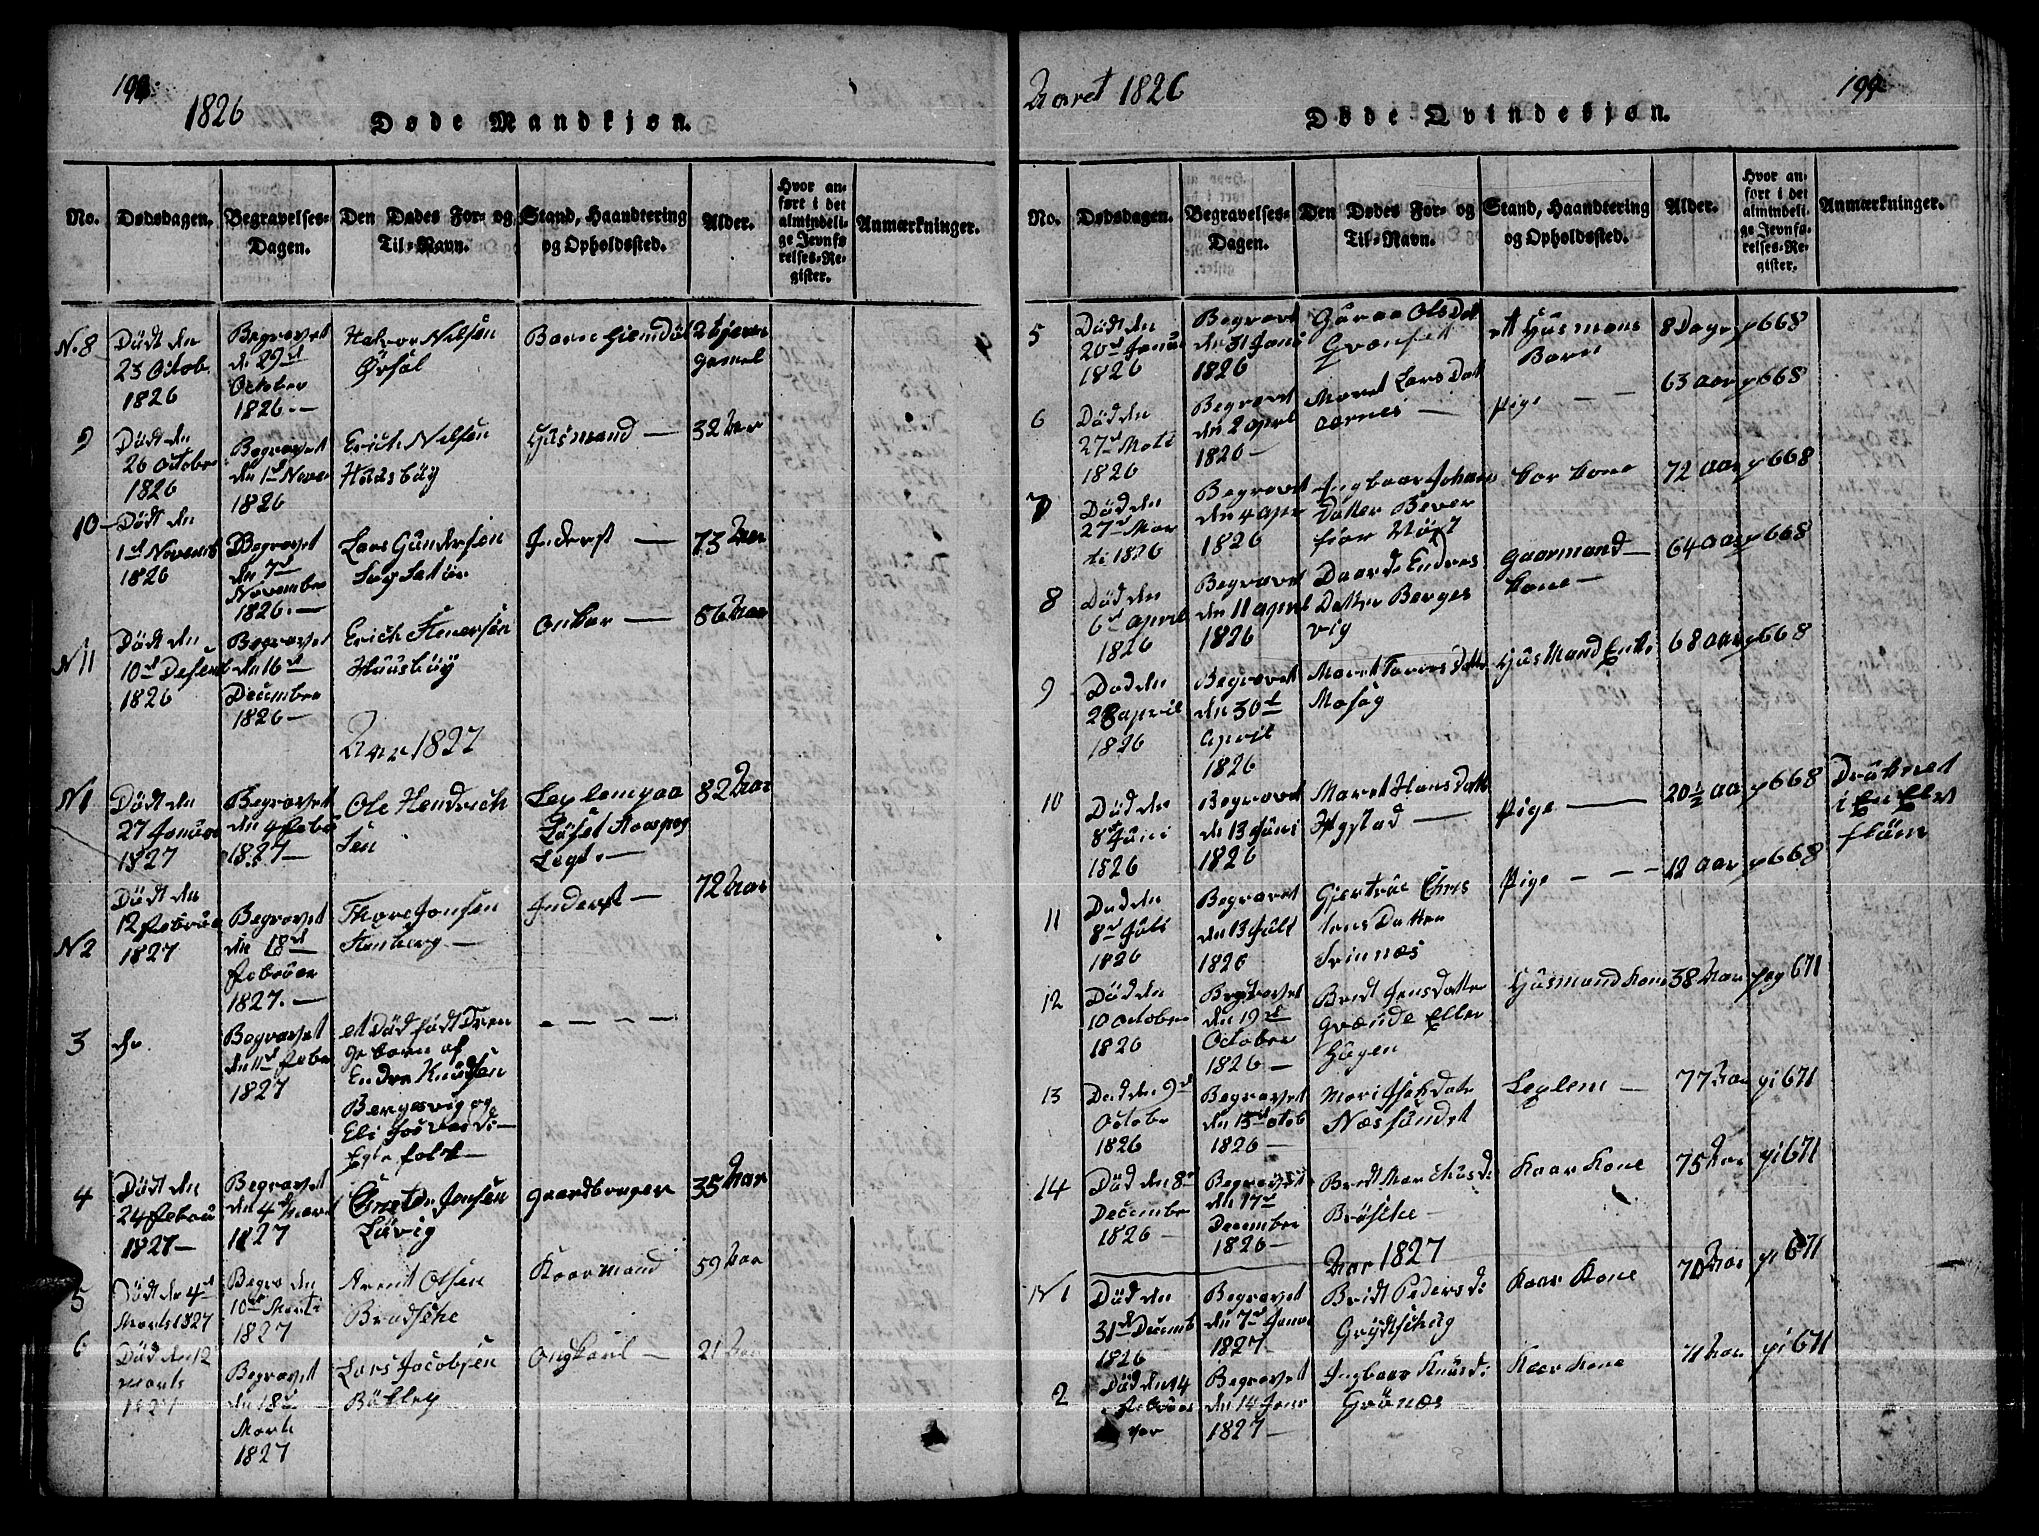 1826
Døde Mandkjøn.
No.
Dødsdagen.
Begravelses-
Dagen.
Den Dødes For- og
Til-Navn.
Stand, Haandtering
og Opholdssted.
Alder.
Hvor an-
ført i det
almindeli-
ge Jevnfø-
relses-Re-
gister.
Anmærkninger.
N. 8
Dödt den
23 Octob.
1826
Begravet
den 29d
October
1826.—
Halvor Nilsen
Barn
gamel
9
Dödt den
26 October
1826
Begravet
den 1st Nove
1826
Erich Nilsen
Husmand —
32 Aar
10
Dödt den
1st Novemb
1826
Begravet
den 7d
Novembe
1826.—
Lars Gundersen
Inderst —
73 Aar
N 11
Dödt den
10d Desem
1826
Begravet
den 16d
December
1826—
Erich
56 Aar
Aar 1827
N 1
Dödt den
27 Januar
1827
Begravet
den 4 Febr
1827—
Ole Hendrich
sen
Leylem paa
82 Aar
N 2
Dödt den
12 Februa
1827
Begravet
den 18d
Februar
1827.—
Thore Jonsen
Inderst —
72 Aar
3
Begravet
den 11d Febr
1827
et Död född Dren
ge barn af
Endre Knudsen
Bergsvig og
Eli
Egte folk—
4
Dödt den
24 Febru
1827—
Begravet
den 4d Mars
1827
Jonsen
Gaardbruger
35 Aar
5
Dödt den 4d
Marts 1827
Begra den
10d Marts
1827
Arent Olsen
Kaarmand
59 Aar
6
Död den 12
Marts
1827
Begravet
den 18d
Marts
1827
Lars Jacobsen
Ongkarl —
21 Aar
Aaret 1826
199
Døde Qvindesjøn.
No.
Dødsdagen.
Begravelses-
Dagen.
Den Dødes For- og
Til-Navn.
Stand, Haandtering
og Opholdssted.
Alder.
Hvor an-
ført i det
almindeli-
ge Jevnfø-
relses-Re-
gister.
Anmærkninger.
5
Dödt den
20d Janua
1826
Begravet
den 31 Jan
1826
Olsdat
et Husmans
Barn
8 Dage
p 668
6
Död den
27d Mats
1826
Begravet
den 2 april
1826—
Maret Larsdat
aarnes —
Pige — —
63 aar
p 668
7
Död den
27d Mar
ts 1826
Begravet
den 4 apr
1826
Ingbaar Johans
Datter Bever
fior
kar kone
72 aar
p 668
8
Död den
6d april
1826
Begravet
den 11 april
1826
Endres
Datter Berges
vig
Gaarmand—
kone—
64 aar
p 668
9
Död den
28 april
1826
Begravet
den 30d
april
1826
Maret Tores Datte
Husmand Enke
68 aar
p 668
10
Död den
8d Juni
1826
Begravet
den 13 Juni
1826
Maret Hans Datt
Pige —
20½ aar
p 668
Dröknet
i En Elve
11
Död den
8d Juli
1826
Begravet
den 13 Juli
1826
Gjertrue Chris
tens Datter
Svinnæs
Pige — — —
12 aar
p 668
12
Död den
10 October
1826
Begravet
den 19d
October
1826—
Brit Jensdatter
Grønde Eller
Haagen
Husmand kone
38 Aar
pag 671
13
Död den 9d
Octobe
1826
Begravet
den 15d Octob
1826—
Mari Isakdate
Næssundet
Leylem —
77 Aar
pi 671
14
Död den 8d
December
1826—
Begravet
den 17d
December
1826—
Brit Marchusd:
Kaar Kone
75 Aar
pi 671
Aar 1827
N 1
Död den
31d Decemb
1826
Begravet
den 7d Janu
1827—
Bridt Pedersd:
Kaar Kone
70 Aar
pi 671
2
Död den 14
Begravet
den 14 Janr
1827—
Ingbaar Knudsd:
Grönæs
Kaar kone
71 Aar
pi 671